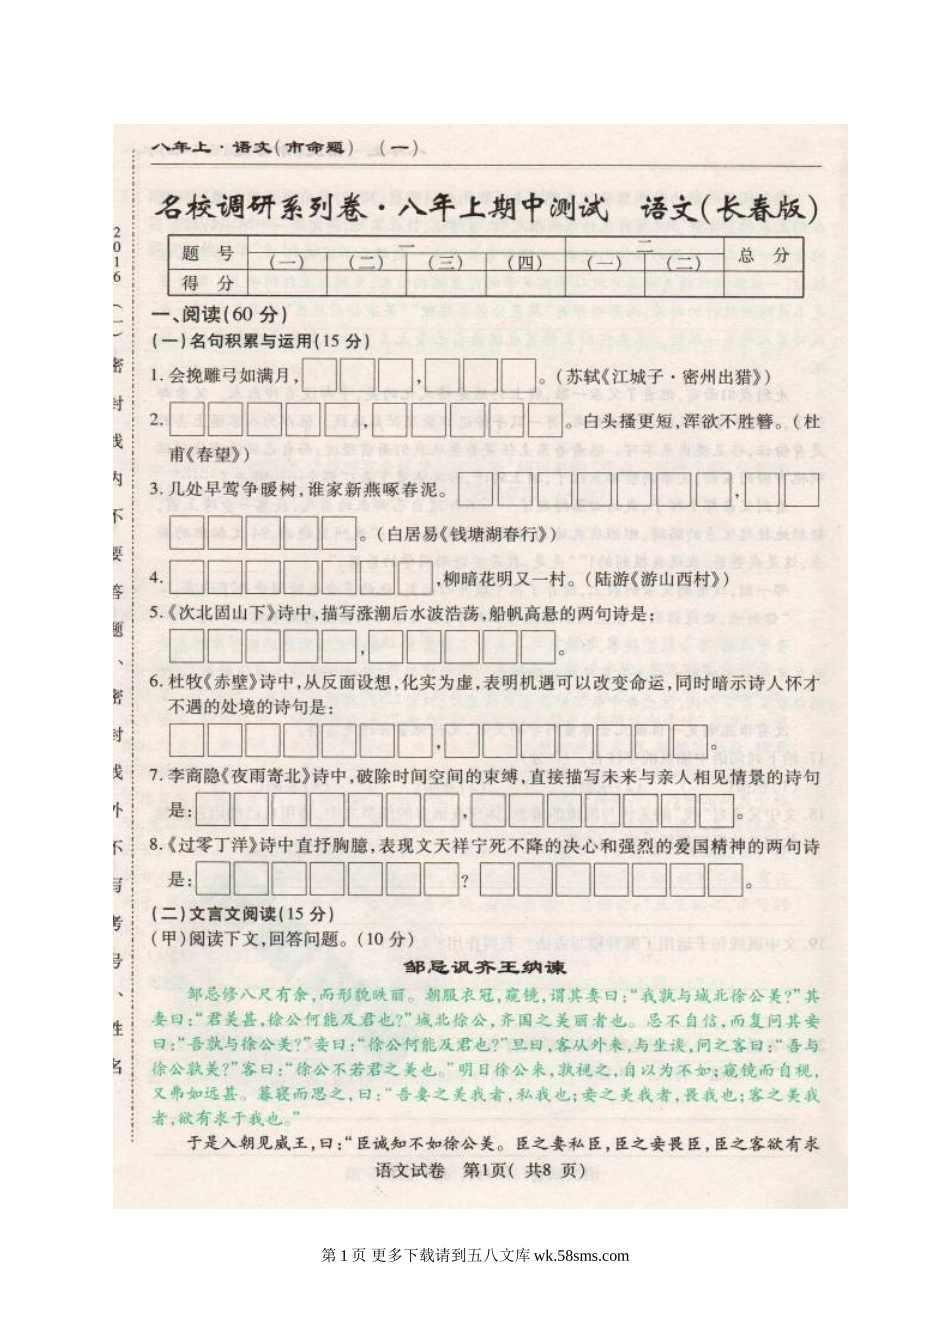 八年上·语文(市命题) (一)
名校调研系列卷·八年上期中测试 语文(长春版)
题号 一 二 总分
(一) (二) (三) (四) (一) (二)
得分
一、阅读(60分)
(一)名句积累与运用(15分)
1.会挽雕弓如满月,□□□,□□□。(苏轼《江城子·密州出猎》)
2.□□□□□,□□□□□。白头搔更短,浑欲不胜簪。(杜
甫《春望》)
3.几处早莺争暖树,谁家新燕啄春泥。□□□□□□□,□□
□□□□□。(白居易《钱塘湖春行》)
4.□□□□□□□,柳暗花明又一村。(陆游《游山西村》)
5.《次北固山下》诗中,描写涨潮后水波浩荡,船帆高悬的两句诗是:
□□□□□,□□□□□。
6.杜牧《赤壁》诗中,从反面设想,化实为虚,表明机遇可以改变命运,同时暗示诗人怀才
不遇的处境的诗句是:
□□□□□□□,□□□□□□□。
7.李商隐《夜雨寄北》诗中,破除时间空间的束缚,直接描写未来与亲人相见情景的诗句
是:□□□□□□□,□□□□□□□。
8.《过零丁洋》诗中直抒胸臆,表现文天祥宁死不降的决心和强烈的爱国精神的两句诗
是:□□□□□□□?□□□□□□□。
(二)文言文阅读(15分)
(甲)阅读下文,回答问题。(10分)
邹忌讽齐王纳谏
邹忌修八尺有余,而形貌昳丽。朝服衣冠,窥镜,谓其妻曰:“我孰与城北徐公美?”其
妻曰:“君美甚,徐公何能及君也?”城北徐公,齐国之美丽者也。忌不自信,而复问其妾
曰:“吾孰与徐公美?”妾曰:“徐公何能及君也?”旦日,客从外来,与坐谈,问之客曰:“吾与
徐公孰美?”客曰:“徐公不若君之美也。”明日徐公来,孰视之,自以为不如;窥镜而自视,
又弗如远甚。暮寝而思之,曰:“吾妻之美我者,私我也;妾之美我者,畏我也;客之美我
者,欲有求于我也。”
于是入朝见威王,曰:“臣诚知不如徐公美。臣之妻私臣,臣之妾畏臣,臣之客欲有求
语文试卷 第1页( 共8 页)
2016
密封线内不要答题、密封线外不写考号、姓名
第 1 页 更多下载请到五八文库 wk.58sms.com